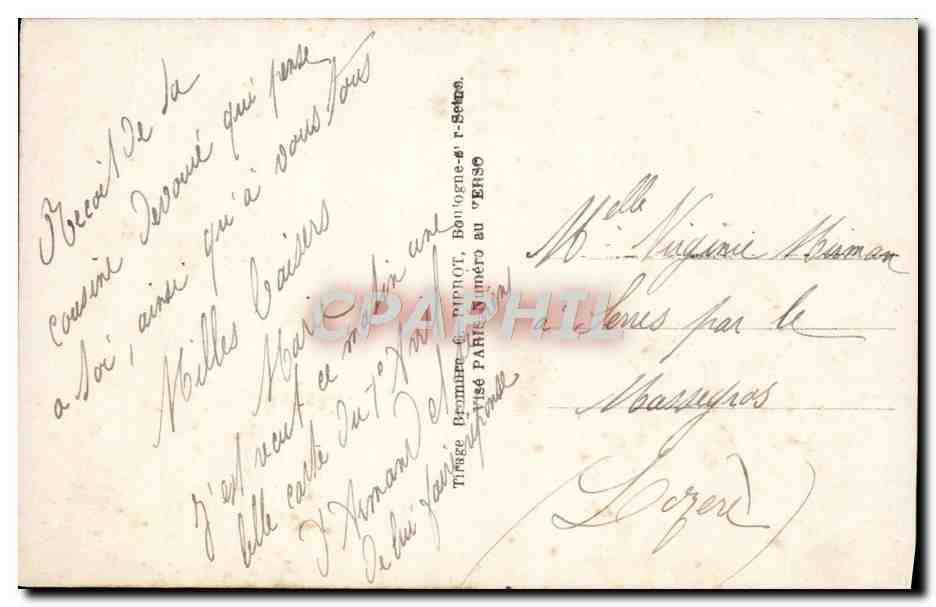 Recoit de ta
cousine devoué qui pense
a toi, ainsi qu'à vous tous
Milles baisers
Marie
j'est recut ce matin une
belle carte du 1e Avril
d'Armand et
de lui faire reponse
Tirage Bromure C. PIPROT, Boulogne-sr-Seine.
Visé PARIS Numéro au VERSO
Melle Virginie
a Serres par le
Massegros
(Lozere)
CPAPHIL